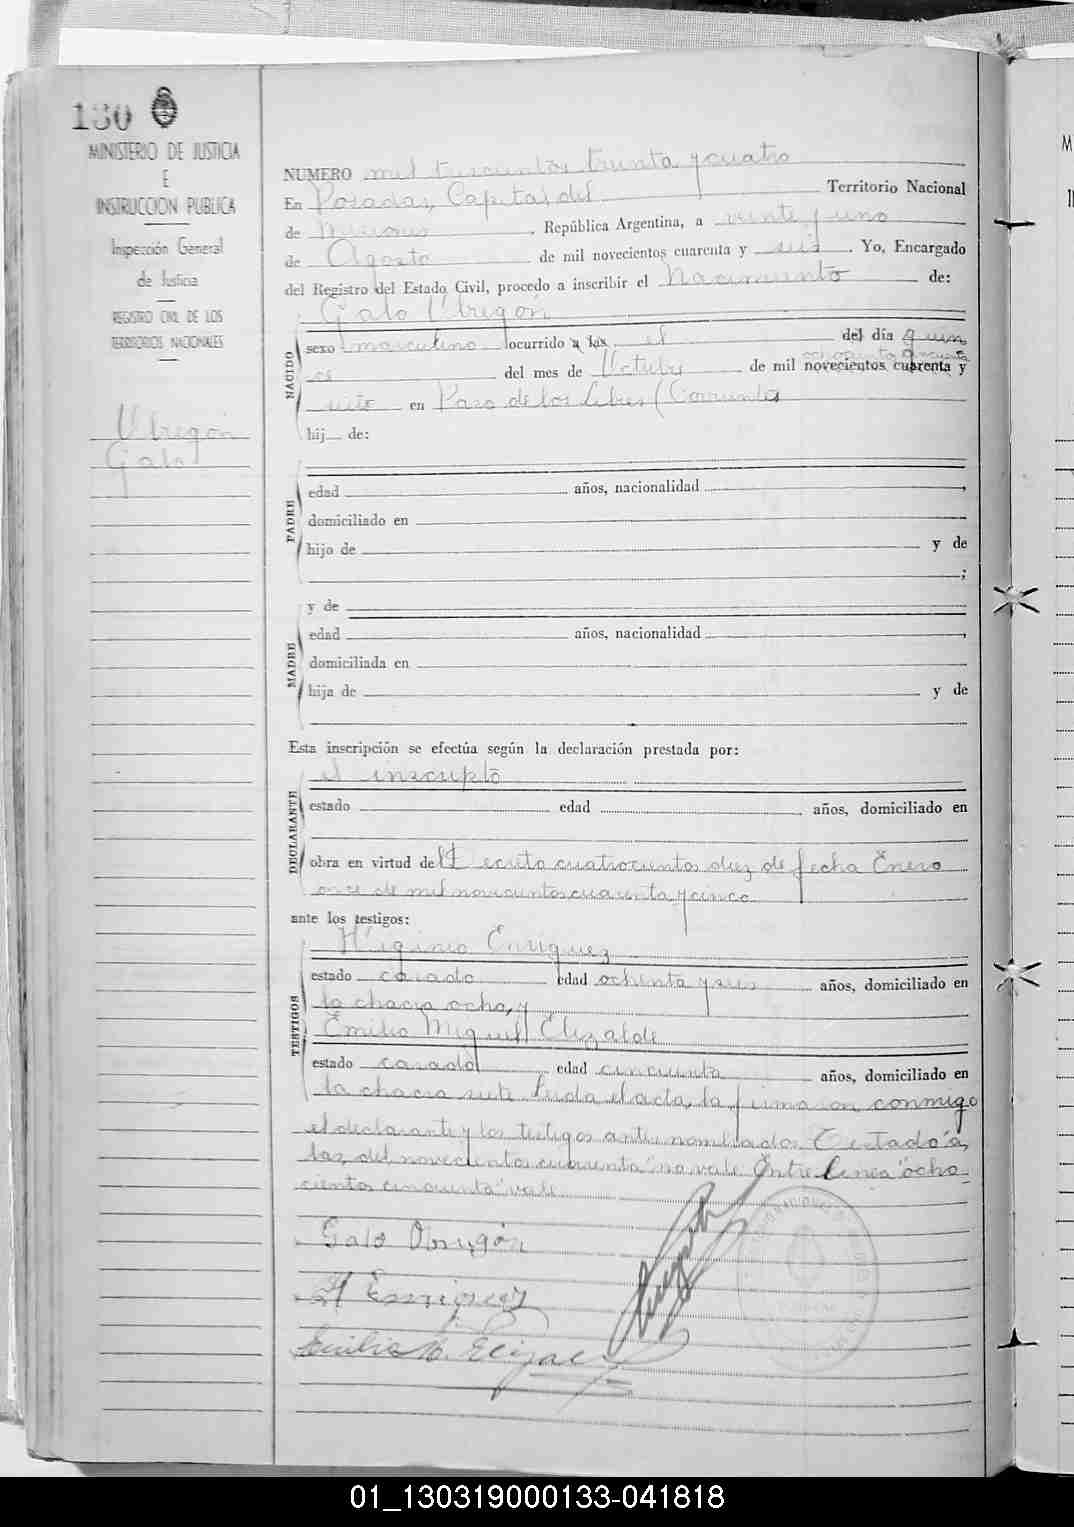 130
MINISTERIO DE JUSTICIA
E
INSTRUCCION PUBLICA
Inspección General
de Justicia
REGISTRO CIVIL DE LOS
TERRITORIOS NACIONALES
Obregón
Galo
NUMERO mil trescientos treinta y cuatro
En Posadas, Capital del Territorio Nacional
de Misiones, República Argentina, a veinte y uno
de Agosto de mil novecientos cuarenta y seis. Yo, Encargado
del Registro del Estado Civil, procedo a inscribir el Nacimiento de:
Galo Obregón
NACIDO
sexo masculino ocurrido a las el del día quin
ochocientos cincuenta
ce del mes de Octubre de mil novecientos cuarenta y
en Paso de los Libres (Corrientes
hij de:
PADRE
edad años, nacionalidad ,
domiciliado en
hijo de y de
;
MADRE
y de
edad años, nacionalidad ,
domiciliada en
hija de y de
Esta inscripción se efectúa según la declaración prestada por:
DECLARANTE
el inscripto
estado edad años, domiciliado en
obra en virtud de cuatrocientos diez de fecha Enero
once de mil novecientos cuarenta y cinco
ante los testigos:
TESTIGOS
Higinio Enriquez
estado casado edad ochenta y seis años, domiciliado en
la chacra ocho, y
Emilio Miguel Elizalde
estado casado edad cincuenta años, domiciliado en
la chacra siete Leida el acta, la firmaron conmigo
el declarante y los testigos antes nombrados. Testado "a
las, del novecientos cuarenta" no vale. Entre linea "ocho-
cientos cincuenta" vale
Galo Obregón
H Enriquez
Emilio M. Elizalde
01_130319000133-041818